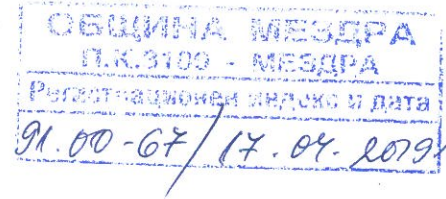 ОБЩИНА МЕЗДРА
П.К.3100 - МЕЗДРА
Регистрационен индекс и дата
91.00-67/17.04.2019